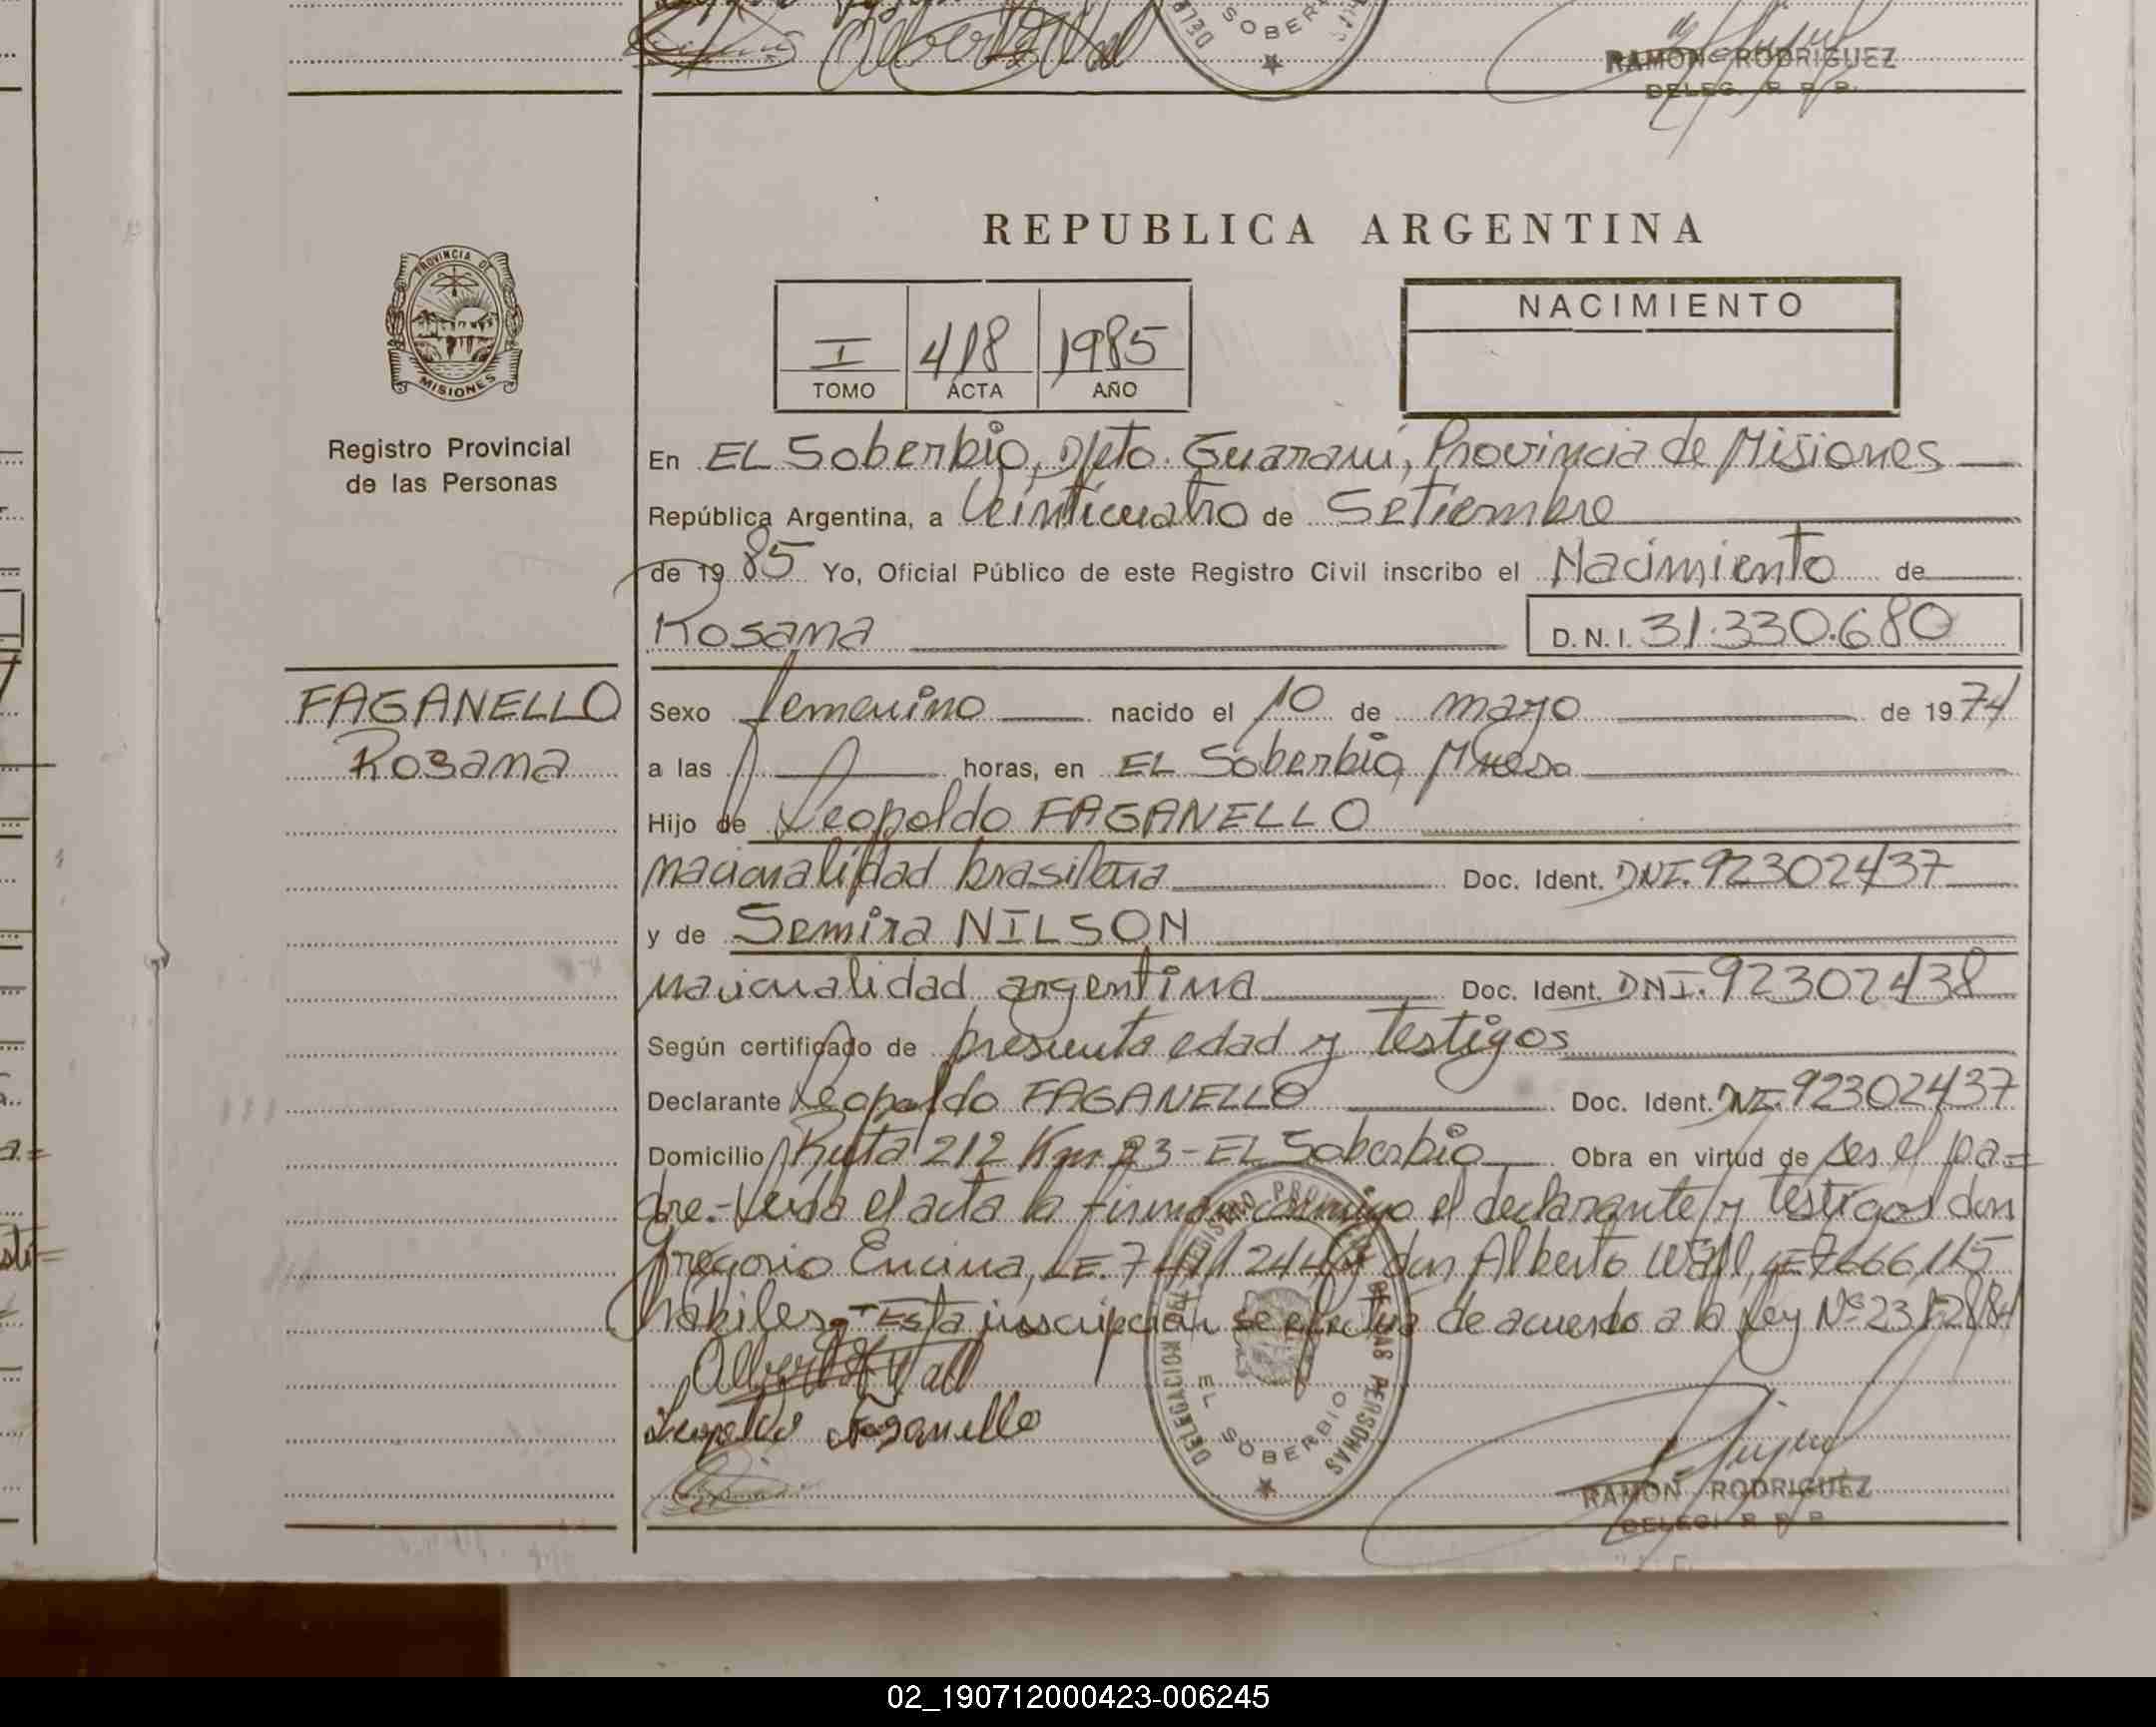 SOBER
RAMON RODRIGUEZ
DELEG. R. P. P.
REPUBLICA ARGENTINA
PROVINCIA DE
MISIONES
NACIMIENTO
I 418 1985
TOMO ACTA AÑO
Registro Provincial
de las Personas
En EL Soberbio, Dpto. Guaraní, Provincia de Misiones
República Argentina, a Veinticuatro de Setiembre
de 19 85 Yo, Oficial Público de este Registro Civil inscribo el Nacimiento de
Rosana D. N. I. 31.330.680
FAGANELLO
Rosana
Sexo femenino nacido el 10 de mayo de 1974
a las horas, en EL Soberbio, Mnes
Hijo de Leopoldo FAGANELLO
nacionalidad brasileña Doc. Ident. DNI. 92302437
y de Semira NILSON
nacionalidad argentina Doc. Ident. DNI. 92302438
Según certificado de presunta edad y testigos
Declarante Leopoldo FAGANELLO Doc. Ident. DNI. 92302437
Domicilio Ruta 212 Km 23 - EL Soberbio Obra en virtud de ser el pa=
dre.- Leída el acta la firman conmigo el declarante y testigos don
Gregorio Encina, LE. y don Alberto Wall, LE 7666115
habiles.- Esta inscripción se efectua de acuerdo a la Ley Nº
Alberto Wall
Leopoldo Faganello
DELEGACION DEL REGISTRO PROVINCIAL DE LAS PERSONAS
EL SOBERBIO
RAMON RODRIGUEZ
DELEG. R. P. P.
02_190712000423-006245